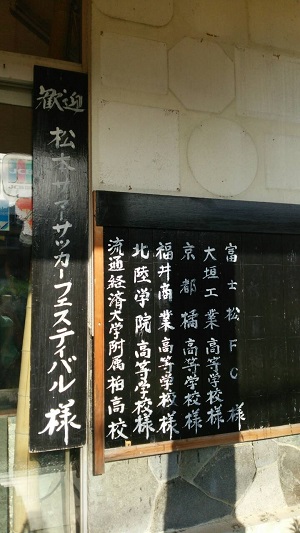 歓迎 松本サマーサッカーフェスティバル様
富士松FC様
大垣工業高等学校様
京都橘高等学校様
福井商業高等学校様
北陸学院高等学校様
流通経済大学附属柏高校